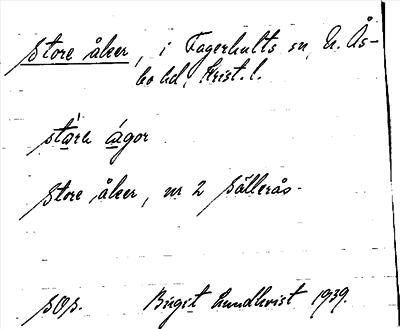 Store åker, i Fagerhults sn, N. Ås-
bo hd, Krist. l.
ståra ågor
Store åker, nr 2 Sällerås.
Birgit Lundkvist 1939.